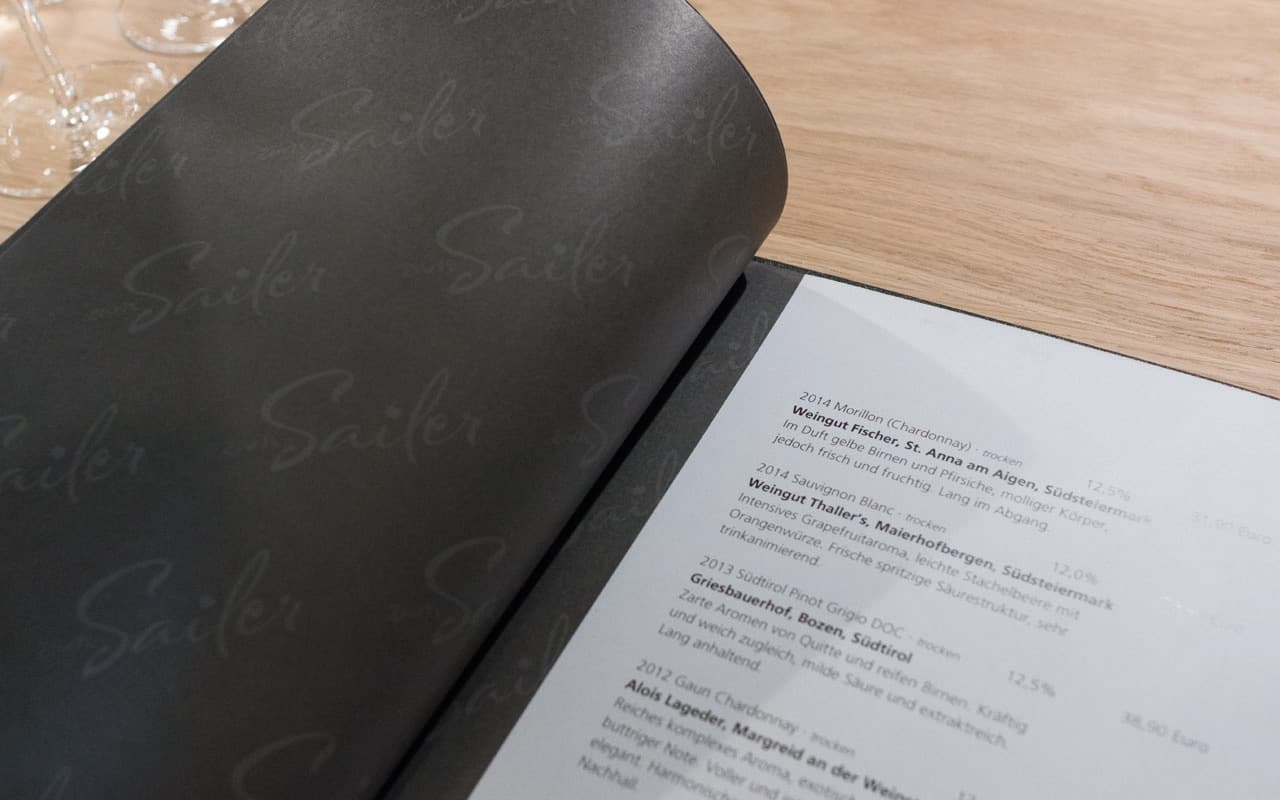 Sailer
Sailer
Sailer
Sailer
Sailer
Sailer
Sailer
Sailer
2014 Morillon (Chardonnay) · trocken 12,5%
Weingut Fischer, St. Anna am Aigen, Südsteiermark 31,90 Euro
Im Duft gelbe Birnen und Pfirsiche, molliger Körper,
jedoch frisch und fruchtig. Lang im Abgang.
2014 Sauvignon Blanc · trocken 12,0%
Weingut Thaller's, Maierhofbergen, Südsteiermark
Intensives Grapefruitaroma, leichte Stachelbeere mit
Orangenwürze. Frische spritzige Säurestruktur, sehr
trinkanimierend.
2013 Südtirol Pinot Grigio DOC · trocken 12,5%
Griesbauerhof, Bozen, Südtirol 38,90 Euro
Zarte Aromen von Quitte und reifen Birnen. Kräftig
und weich zugleich, milde Säure und extraktreich.
Lang anhaltend.
2012 Gaun Chardonnay · trocken
Alois Lageder, Margreid an der
Reiches komplexes Aroma,
buttriger Note. Voller und
elegant.
Nachhall.